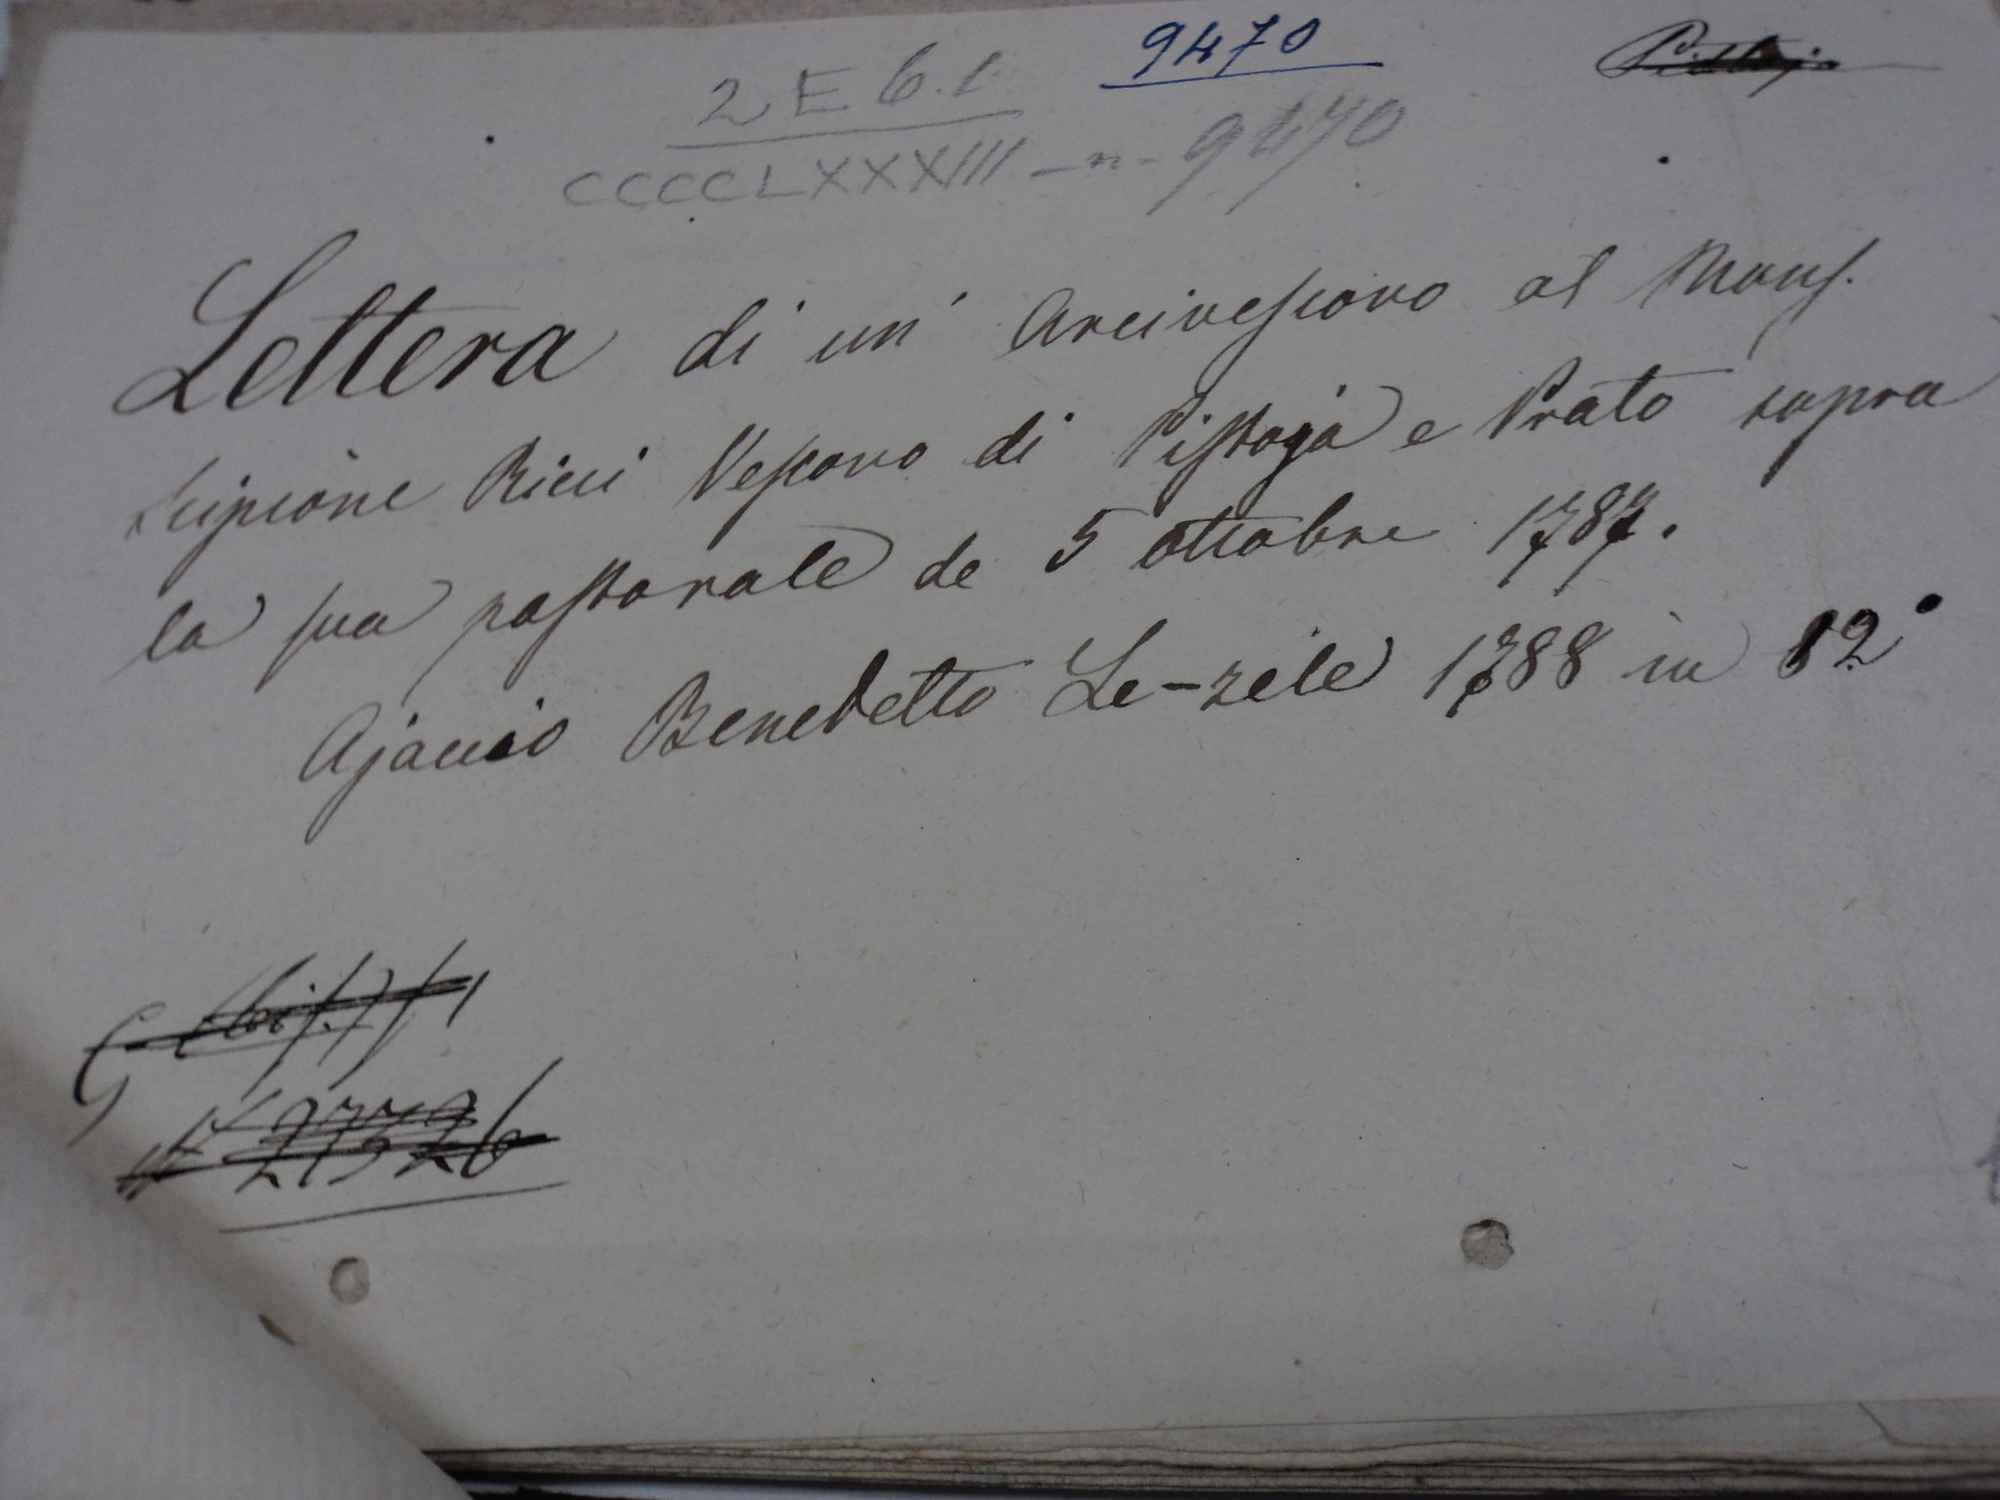 9470
2 E 6.1.
CCCCLXXXIII - n - 9470
Lettera di un' Arcivescovo al Mons.
Scipione Ricci Vescovo di Pistoja e Prato sopra
la sua pastorale de 5 ottobre 1787.
Ajaccio Benedetto Le-zèle 1788 in 12°